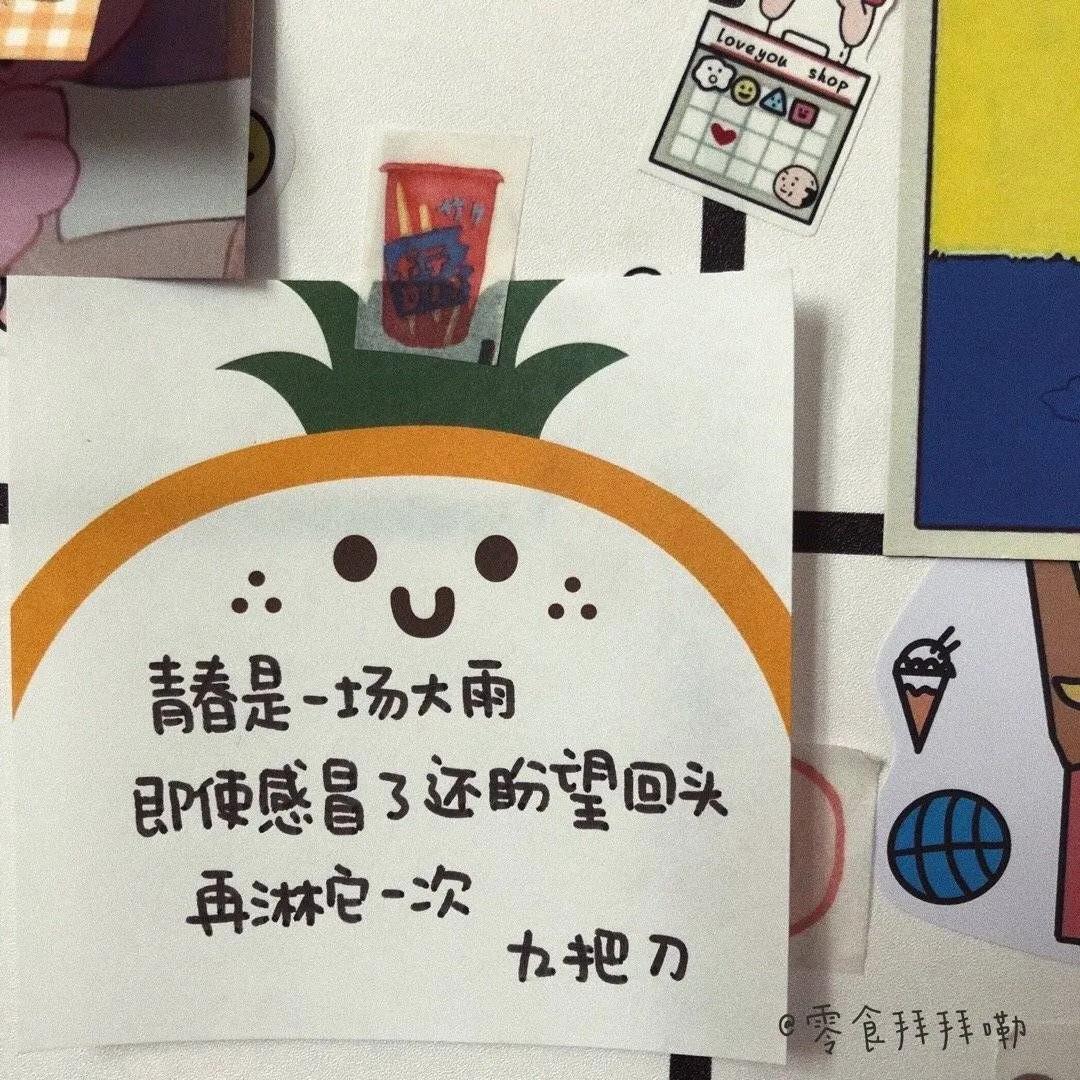 Loveyou shop
ポテ
青春是一场大雨
即使感冒了还盼望回头
再淋它一次
九把刀
@零食拜拜嘞